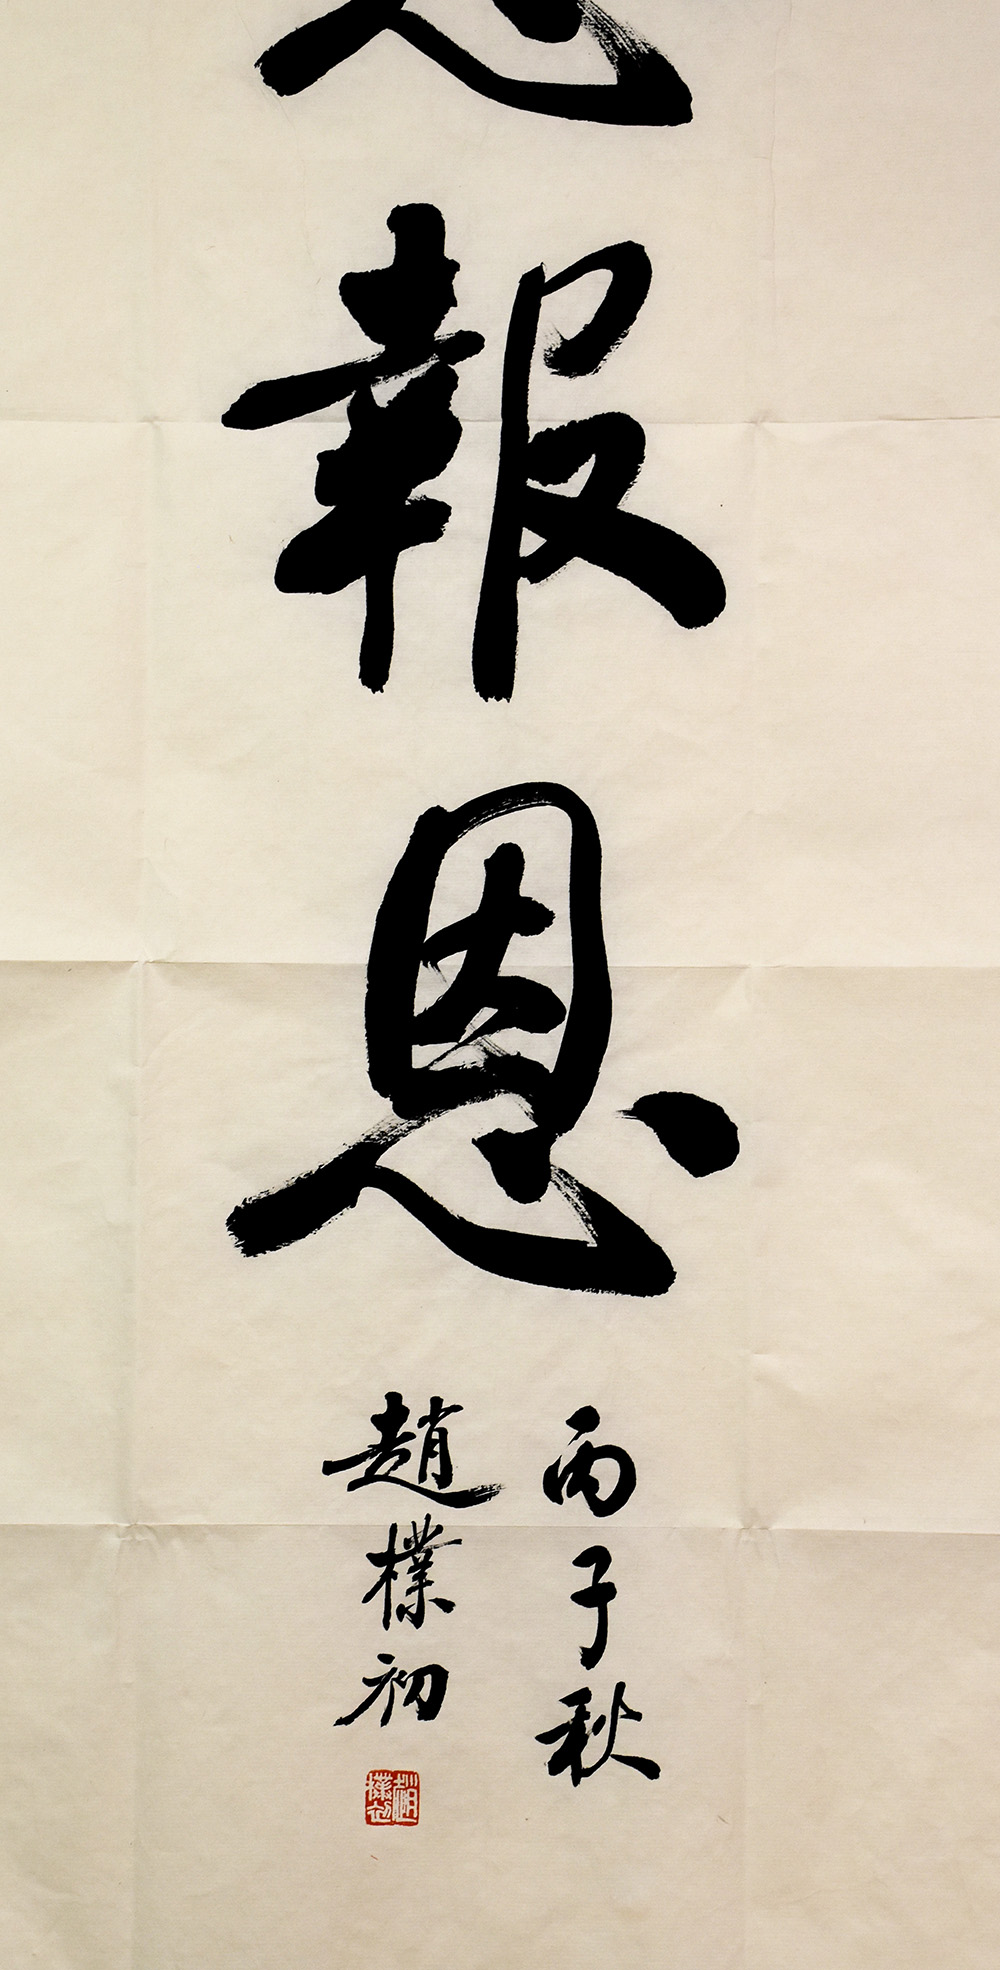 報恩
丙子秋
趙樸初
趙樸初